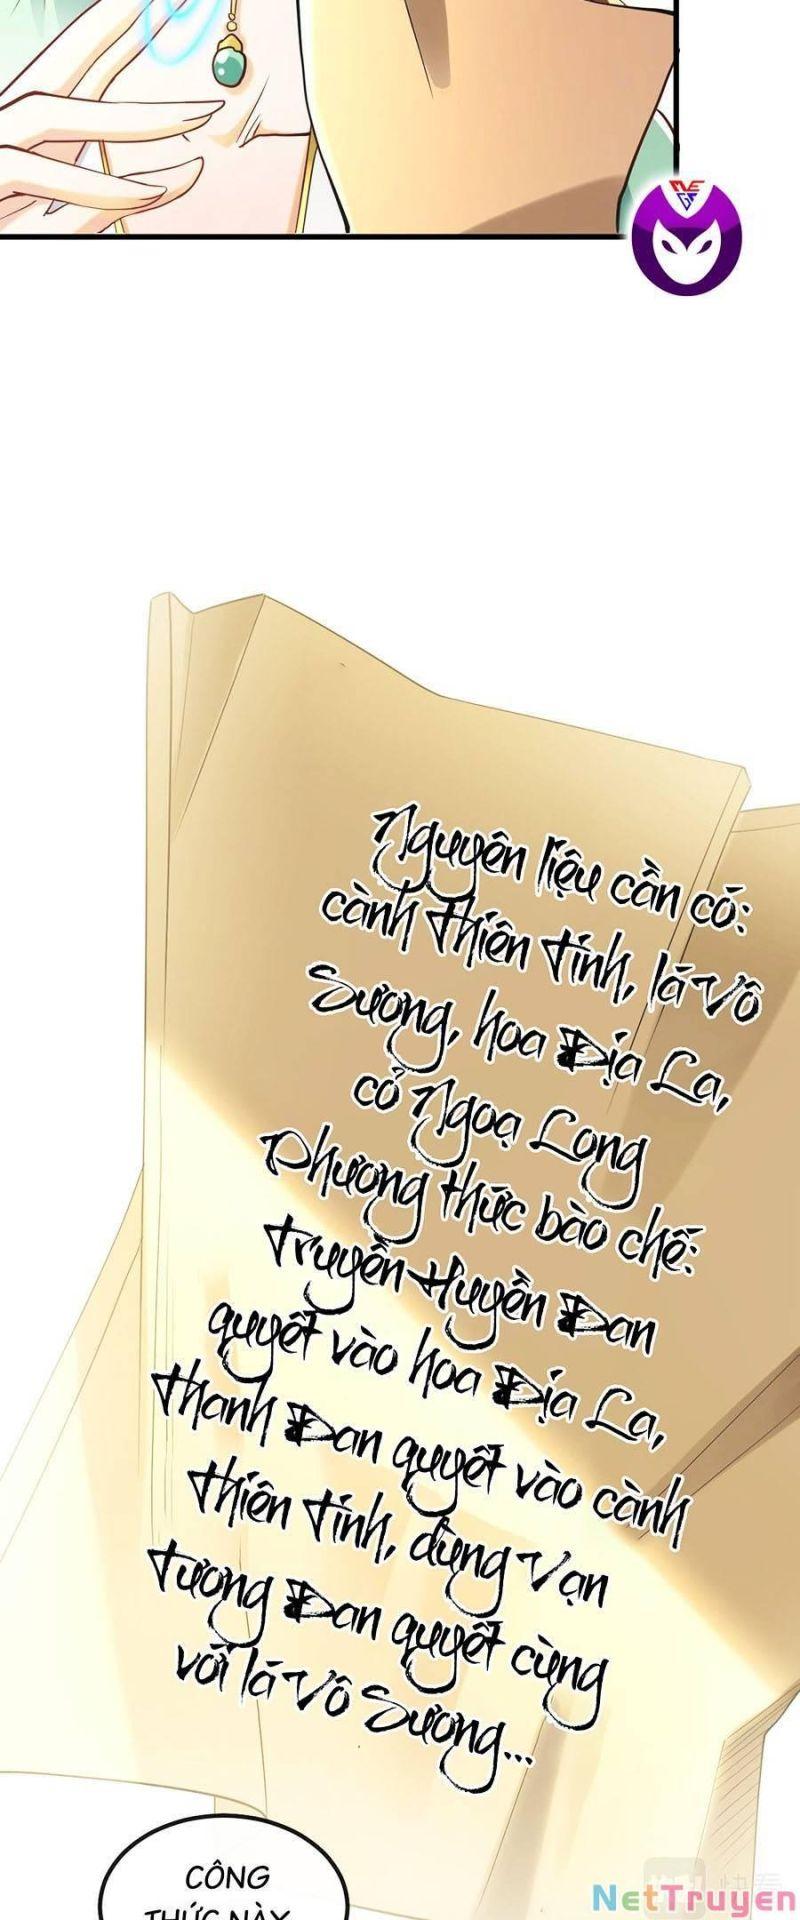 Nguyên liệu cần có:
cành thiên tính, lá Vô
Sương, hoa Địa La,
cỏ Ngoạ Long
Phương thức bào chế:
truyền Huyền Đan
quyết vào hoa Địa La,
thanh Đan quyết vào cành
thiên tính, dùng Vạn
tượng Đan quyết cùng
với lá Vô Sương...
CÔNG
THỨC NÀY
NetTruyen